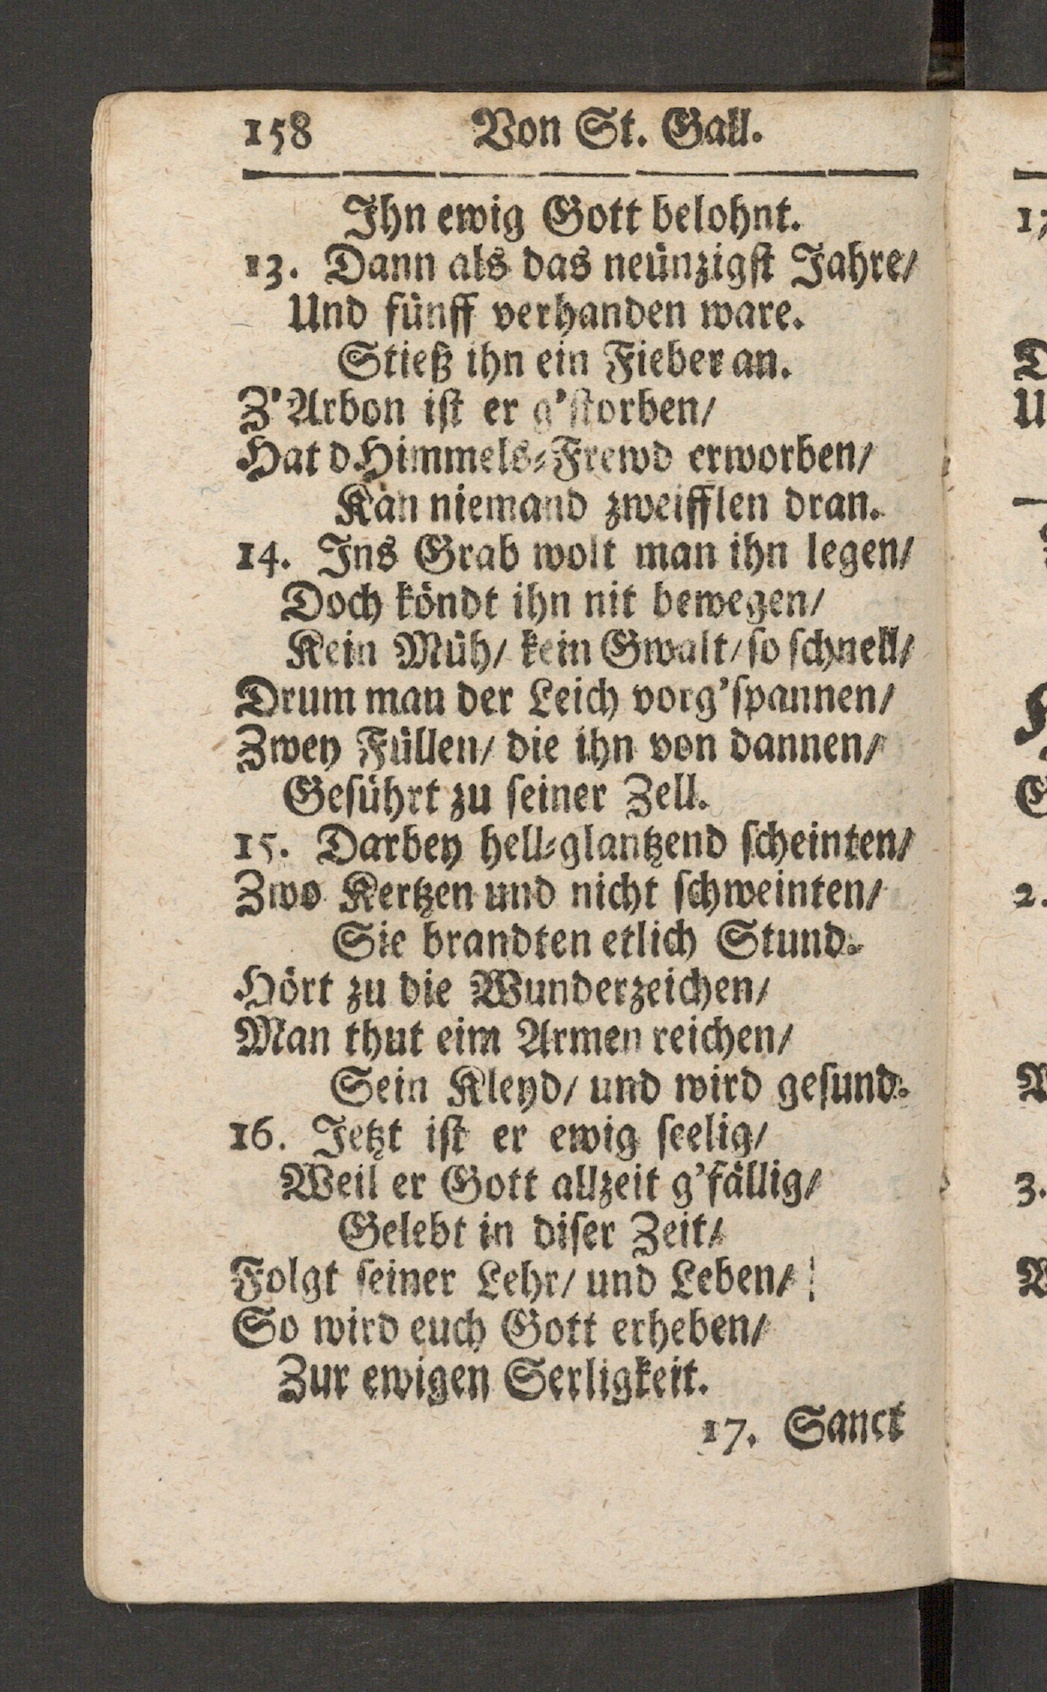 158 Von St. Gall.
Ihn ewig Gott belohnt.
13. Dann als das neünzigſt Jahre/
Und fünff verhanden ware.
Stieß ihn ein Fieber an.
Z'Arbon iſt er g'ſtorben/
Hat d Himmels⸗Frewd erworben/
Kan niemand zweifflen dran.
14. Ins Grab wolt man ihn legen/
Doch köndt ihn nit bewegen/
Kein Müh/ kein Gwalt/ ſo ſchnell/
Drum man der Leich vorg'ſpannen/
Zwey Füllen/ die ihn von dannen/
Geführt zu ſeiner Zell.
15. Darbey hell⸗glantzend ſcheinten/
Zwo Kertzen und nicht ſchweinten/
Sie brandten etlich Stund.
Hört zu die Wunderzeichen/
Man thut eim Armen reichen/
Sein Kleyd/ und wird geſund.
16. Jetzt iſt er ewig ſeelig/
Weil er Gott allzeit g'fällig/
Gelebt in diſer Zeit/
Folgt ſeiner Lehr/ und Leben/
So wird euch Gott erheben/
Zur ewigen Serligkeit.
17. Sanct